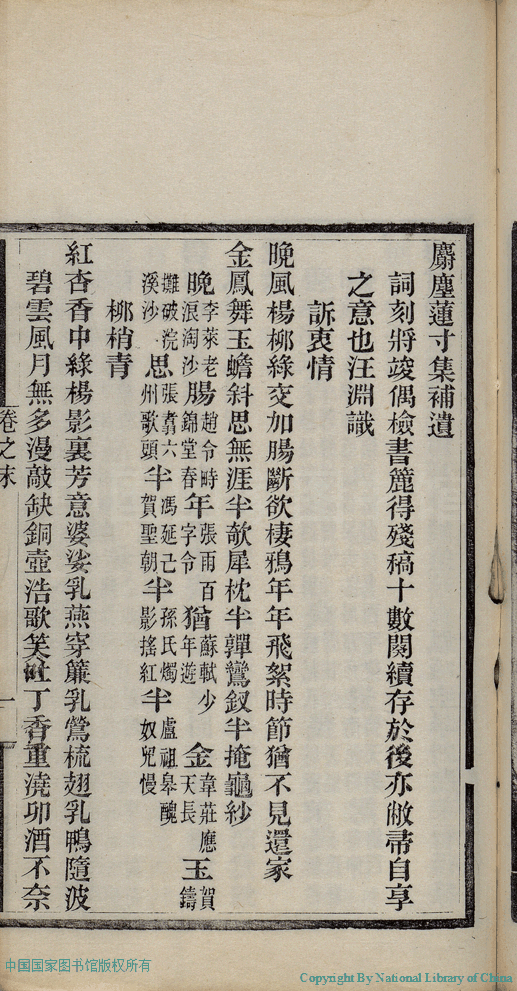 麝塵蓮寸集補遺
詞刻將竣偶檢書簏得殘稿十數闋續存於後亦敝帚自享
之意也汪淵識
訴衷情
晚風楊柳綠交加腸斷欲棲鴉年年飛絮時節猶不見還家
金鳳舞玉蟾斜思無涯半欹犀枕半嚲鸞釵半掩龜紗
晚李萊老浪淘沙腸趙令畤錦堂春年張雨百字令猶蘇軾少年遊金韋莊應天長玉賀鑄
攤破浣溪沙思張翥六州歌頭半馮延己賀聖朝半孫氏燭影搖紅半盧祖皋醜奴兒慢
柳梢青
紅杏香中綠楊影裏芳意婆娑乳燕穿簾乳鶯梳翅乳鴨隨波
碧雲風月無多漫敲缺銅壺浩歌笑吐丁香重澆卯酒不奈
卷之末
一
中国国家图书馆版权所有
Copyright By National Library of China